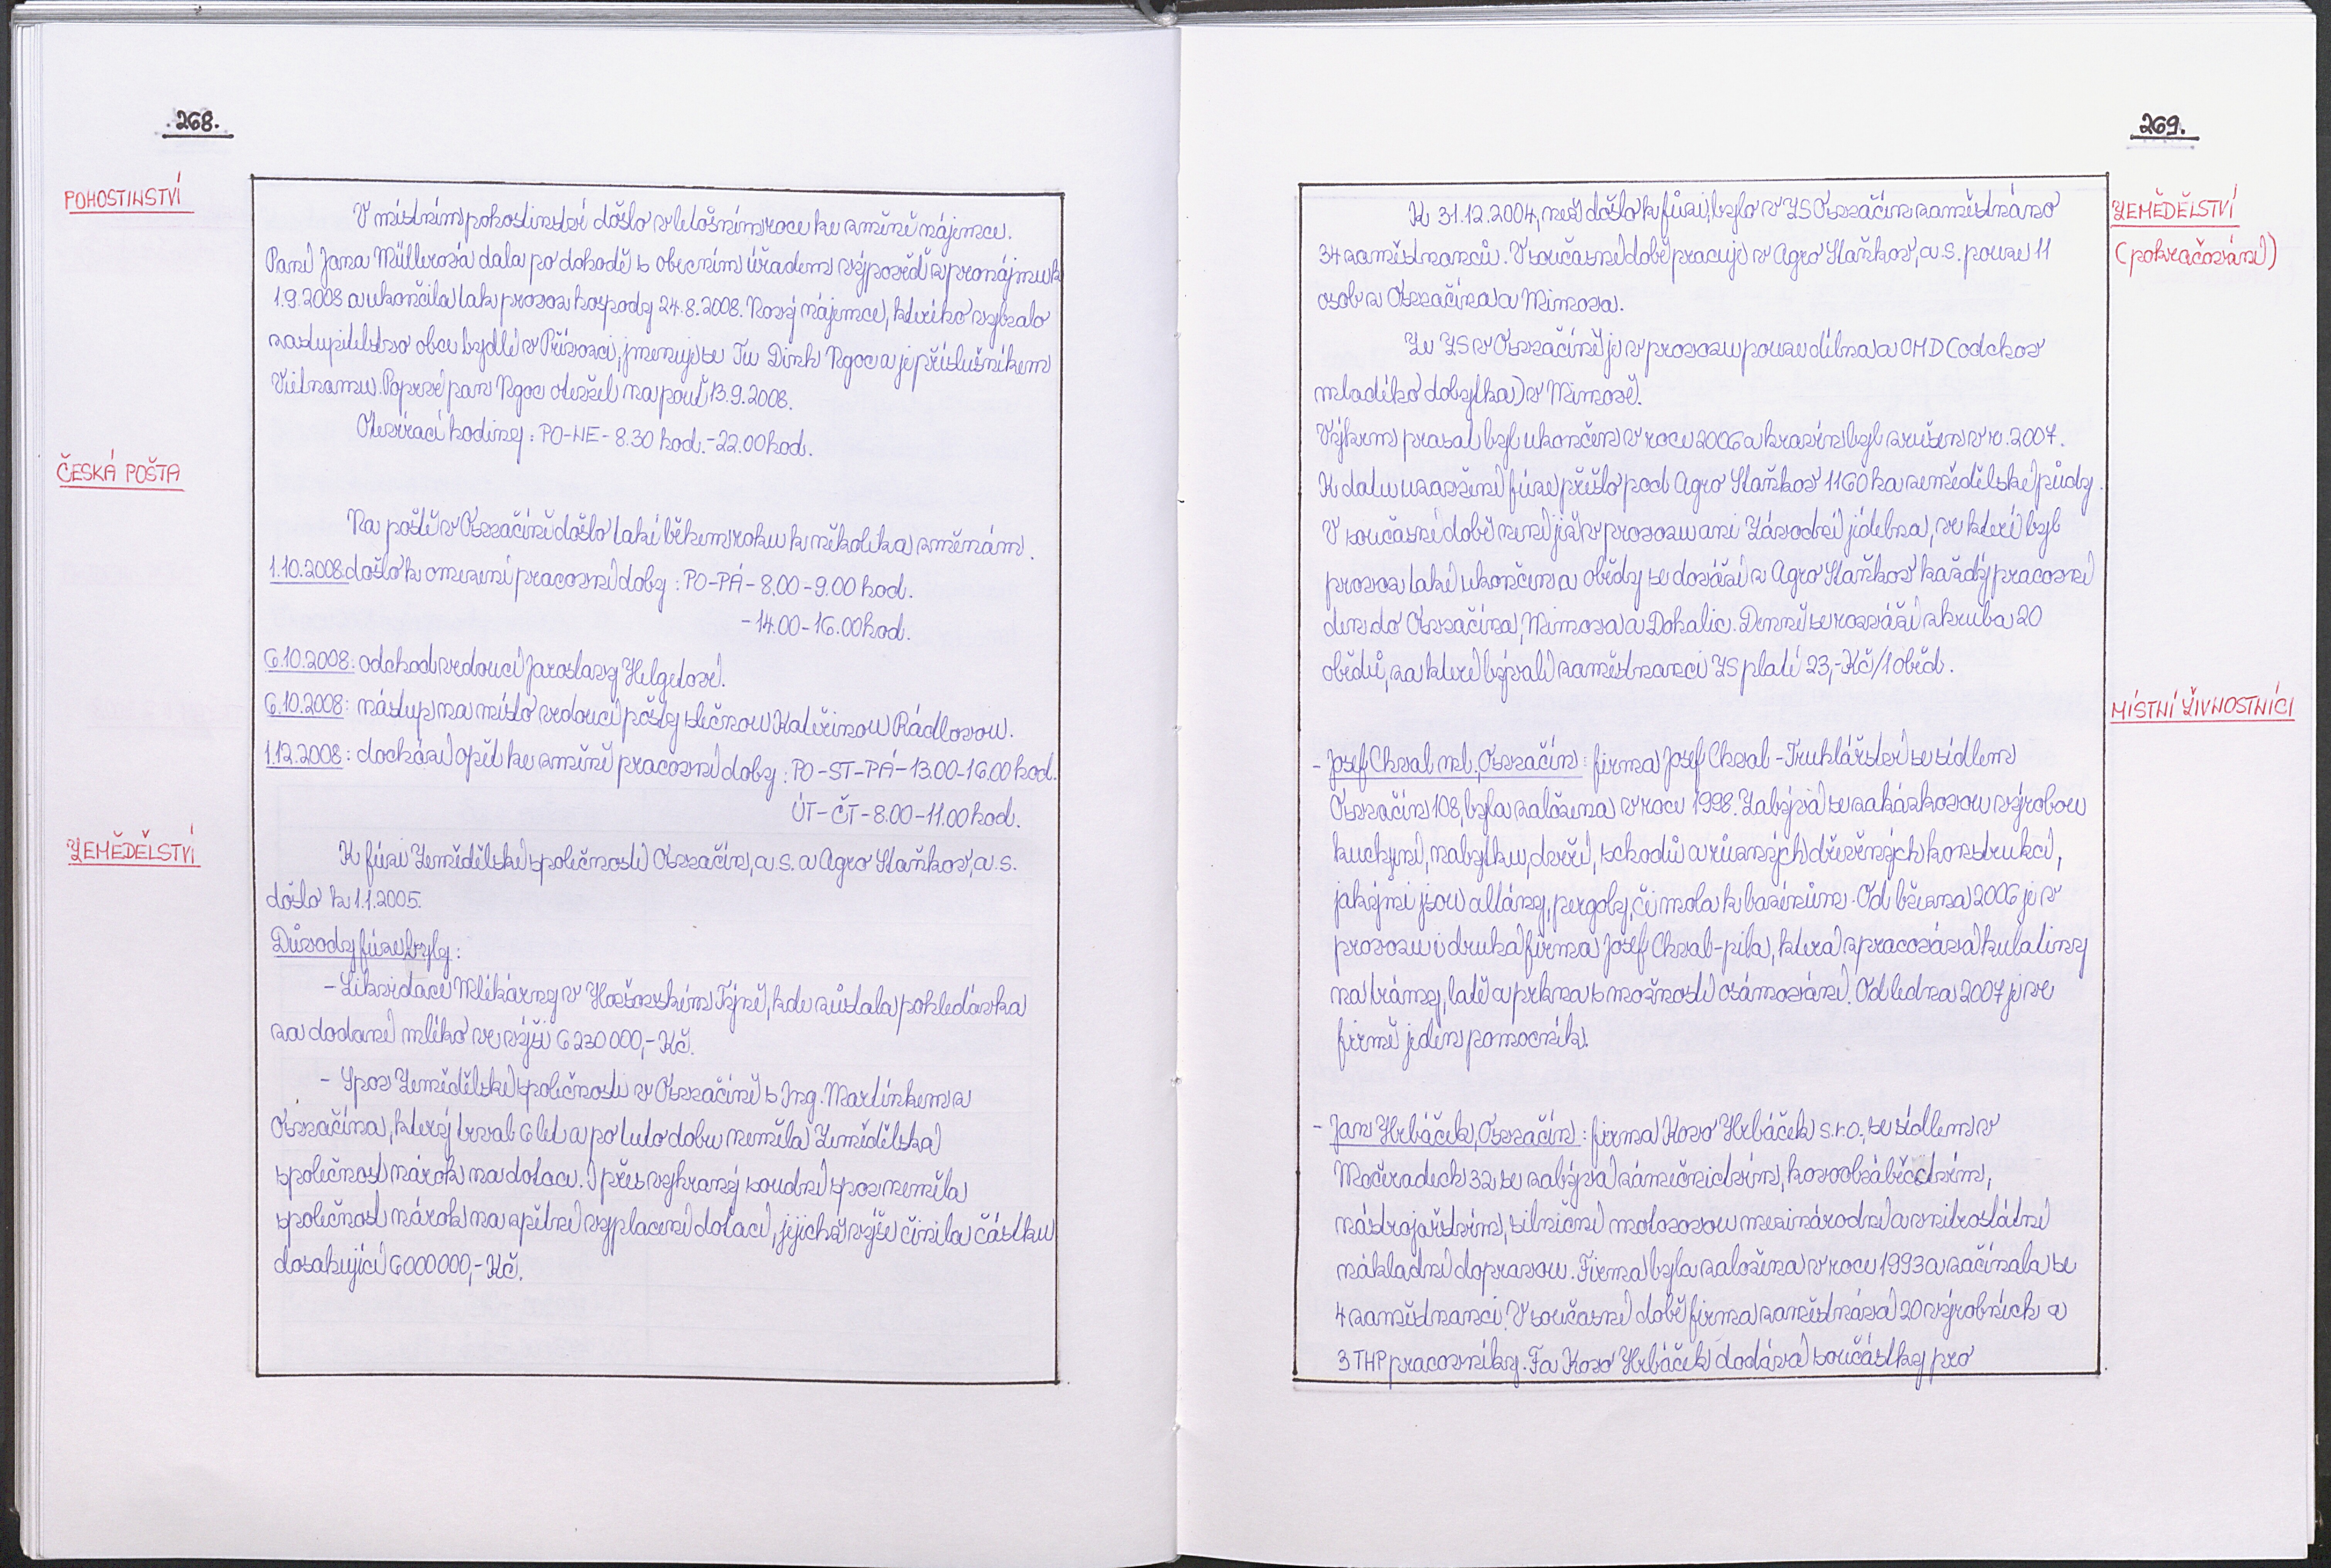 268.
POHOSTINSTVÍ
V místním pohostinství došlo v letošním roce ke změně nájemce.
Paní Jana Müllerová dala po dohodě s obecním úřadem výpověď z pronájmu k
1.9.2008 a ukončila tak provoz hospody 24.8.2008. Nový nájemce, kterého vybralo
zastupitelstvo obce bydlí v Přívozci, jmenuje se Tu Dinh Ngoc a je příslušníkem
Vietnamu. Poprvé pan Ngoc otevřel na pouť 13.9.2008.
Otevírací hodiny: PO-NE - 8.30 hod. - 22.00 hod.
ČESKÁ POŠTA
Na poště v Osvračíně došlo také během roku k několika změnám.
1.10.2008 došlo k omezení pracovní doby: PO-PÁ - 8.00 - 9.00 hod.
- 14.00 - 16.00 hod.
6.10.2008: odchod vedoucí Jaroslavy Helgetové.
6.10.2008: nástup na místo vedoucí pošty slečnou Kateřinou Rádlovou.
1.12.2008: dochází opět ke změně pracovní doby: PO-ST-PÁ - 13.00-16.00 hod.
ÚT-ČT - 8.00 - 11.00 hod.
ZEMĚDĚLSTVÍ
K fúzi Zemědělské společnosti Osvračín, a.s. a Agro Staňkov, a.s.
došlo k 1.1.2005.
Důvody fúze byly:
- Likvidace Mlékárny v Horšovském Týně, kde zůstala pohledávka
za dodané mléko ve výši 6 230 000,- Kč.
- Spor Zemědělské společnosti v Osvračíně s Ing. Martínkem z
Osvračína, který trval 6 let a po tuto dobu neměla Zemědělská
společnost nárok na dotace. I přes vyhraný soudní spor neměla
společnost nárok na zpětné vyplacení dotací, jejichž výše činila částku
dosahující 6 000 000,- Kč.
269.
ZEMĚDĚLSTVÍ
(pokračování)
K 31.12.2004, než došlo k fůzi, bylo v ZS Osvračín zaměstnáno
34 zaměstnanců. V současné době pracuje v Agro Staňkov, a.s. pouze 11
osob z Osvračína a Mimova.
Ze ZS v Osvračíně je v provozu pouze dílna a OMD (odchov
mladého dobytka) v Mimově.
Výkrm prasat byl ukončen v roce 2006 a kravín byl zrušen v r. 2007.
K datu uzavření fúze přišlo pod Agro Staňkov 1160 ha zemědělské půdy.
V současné době není již v provozu ani Závodní jídelna, ve které byl
provoz také ukončen a obědy se dováží z Agro Staňkov každý pracovní
den do Osvračína, Mimova a Dohalic. Denně se rozváží zhruba 20
obědů, za které bývalí zaměstnanci ZS platí 23,- Kč/1 oběd.
MÍSTNÍ ŽIVNOSTNÍCI
- Josef Chval ml., Osvračín: firma Josef Chval - Truhlářství se sídlem
Osvračín 108, byla založena v roce 1998. Zabývá se zakázkovou výrobou
kuchyní, nabytku, dveří, schodů a různých dřevěných konstrukcí,
jakými jsou altány, pergoly, či mola k bazénům. Od března 2006 je v
provozu i druhá firma Josef Chval - pila, která zpracovává kulatiny
na trámy, latě a prkna s možností osámování. Od ledna 2007 je ve
firmě jeden pomocník.
- Jan Hrbáček, Osvračín: firma Kovo Hrbáček s.r.o., se sídlem v
Močeradech 32 se zabývá zámečnictvím, kovoobráběčstvím,
nástrojařstvím, silniční motorovou mezinárodní a vnitrostátní
nákladní dopravou. Firma byla založena v roce 1993 a začínala se
4 zaměstnanci. V současné době firma zaměstnává 20 výrobních a
3 THP pracovníky. Fa Kovo Hrbáček dodává součástky pro